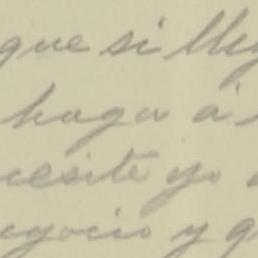 que si lleg
haga á
cesite yo
egocio y q